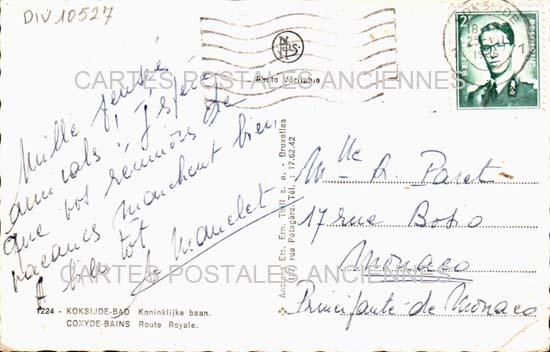 DIV 10527
KOKSIJDE
2F
BELGIE
NELS
Photo Véritable
CARTES POSTALES ANCIENNES
Mille pensées
amicales, J'espère
que vos réunions de
vacances marchent bien
A bientôt,
Mlle R. Paret
17 rue Bosio
Monaco
Principauté de Monaco
CARTES POSTALES ANCIENNES
Anciens Ets. Ern. Thill, s. a. - Bruxelles
(67) rue Potagère, Tél. 17.62.42
1224 - KOKSIJDE-BAD Koninklijke baan.
COXYDE-BAINS Route Royale.